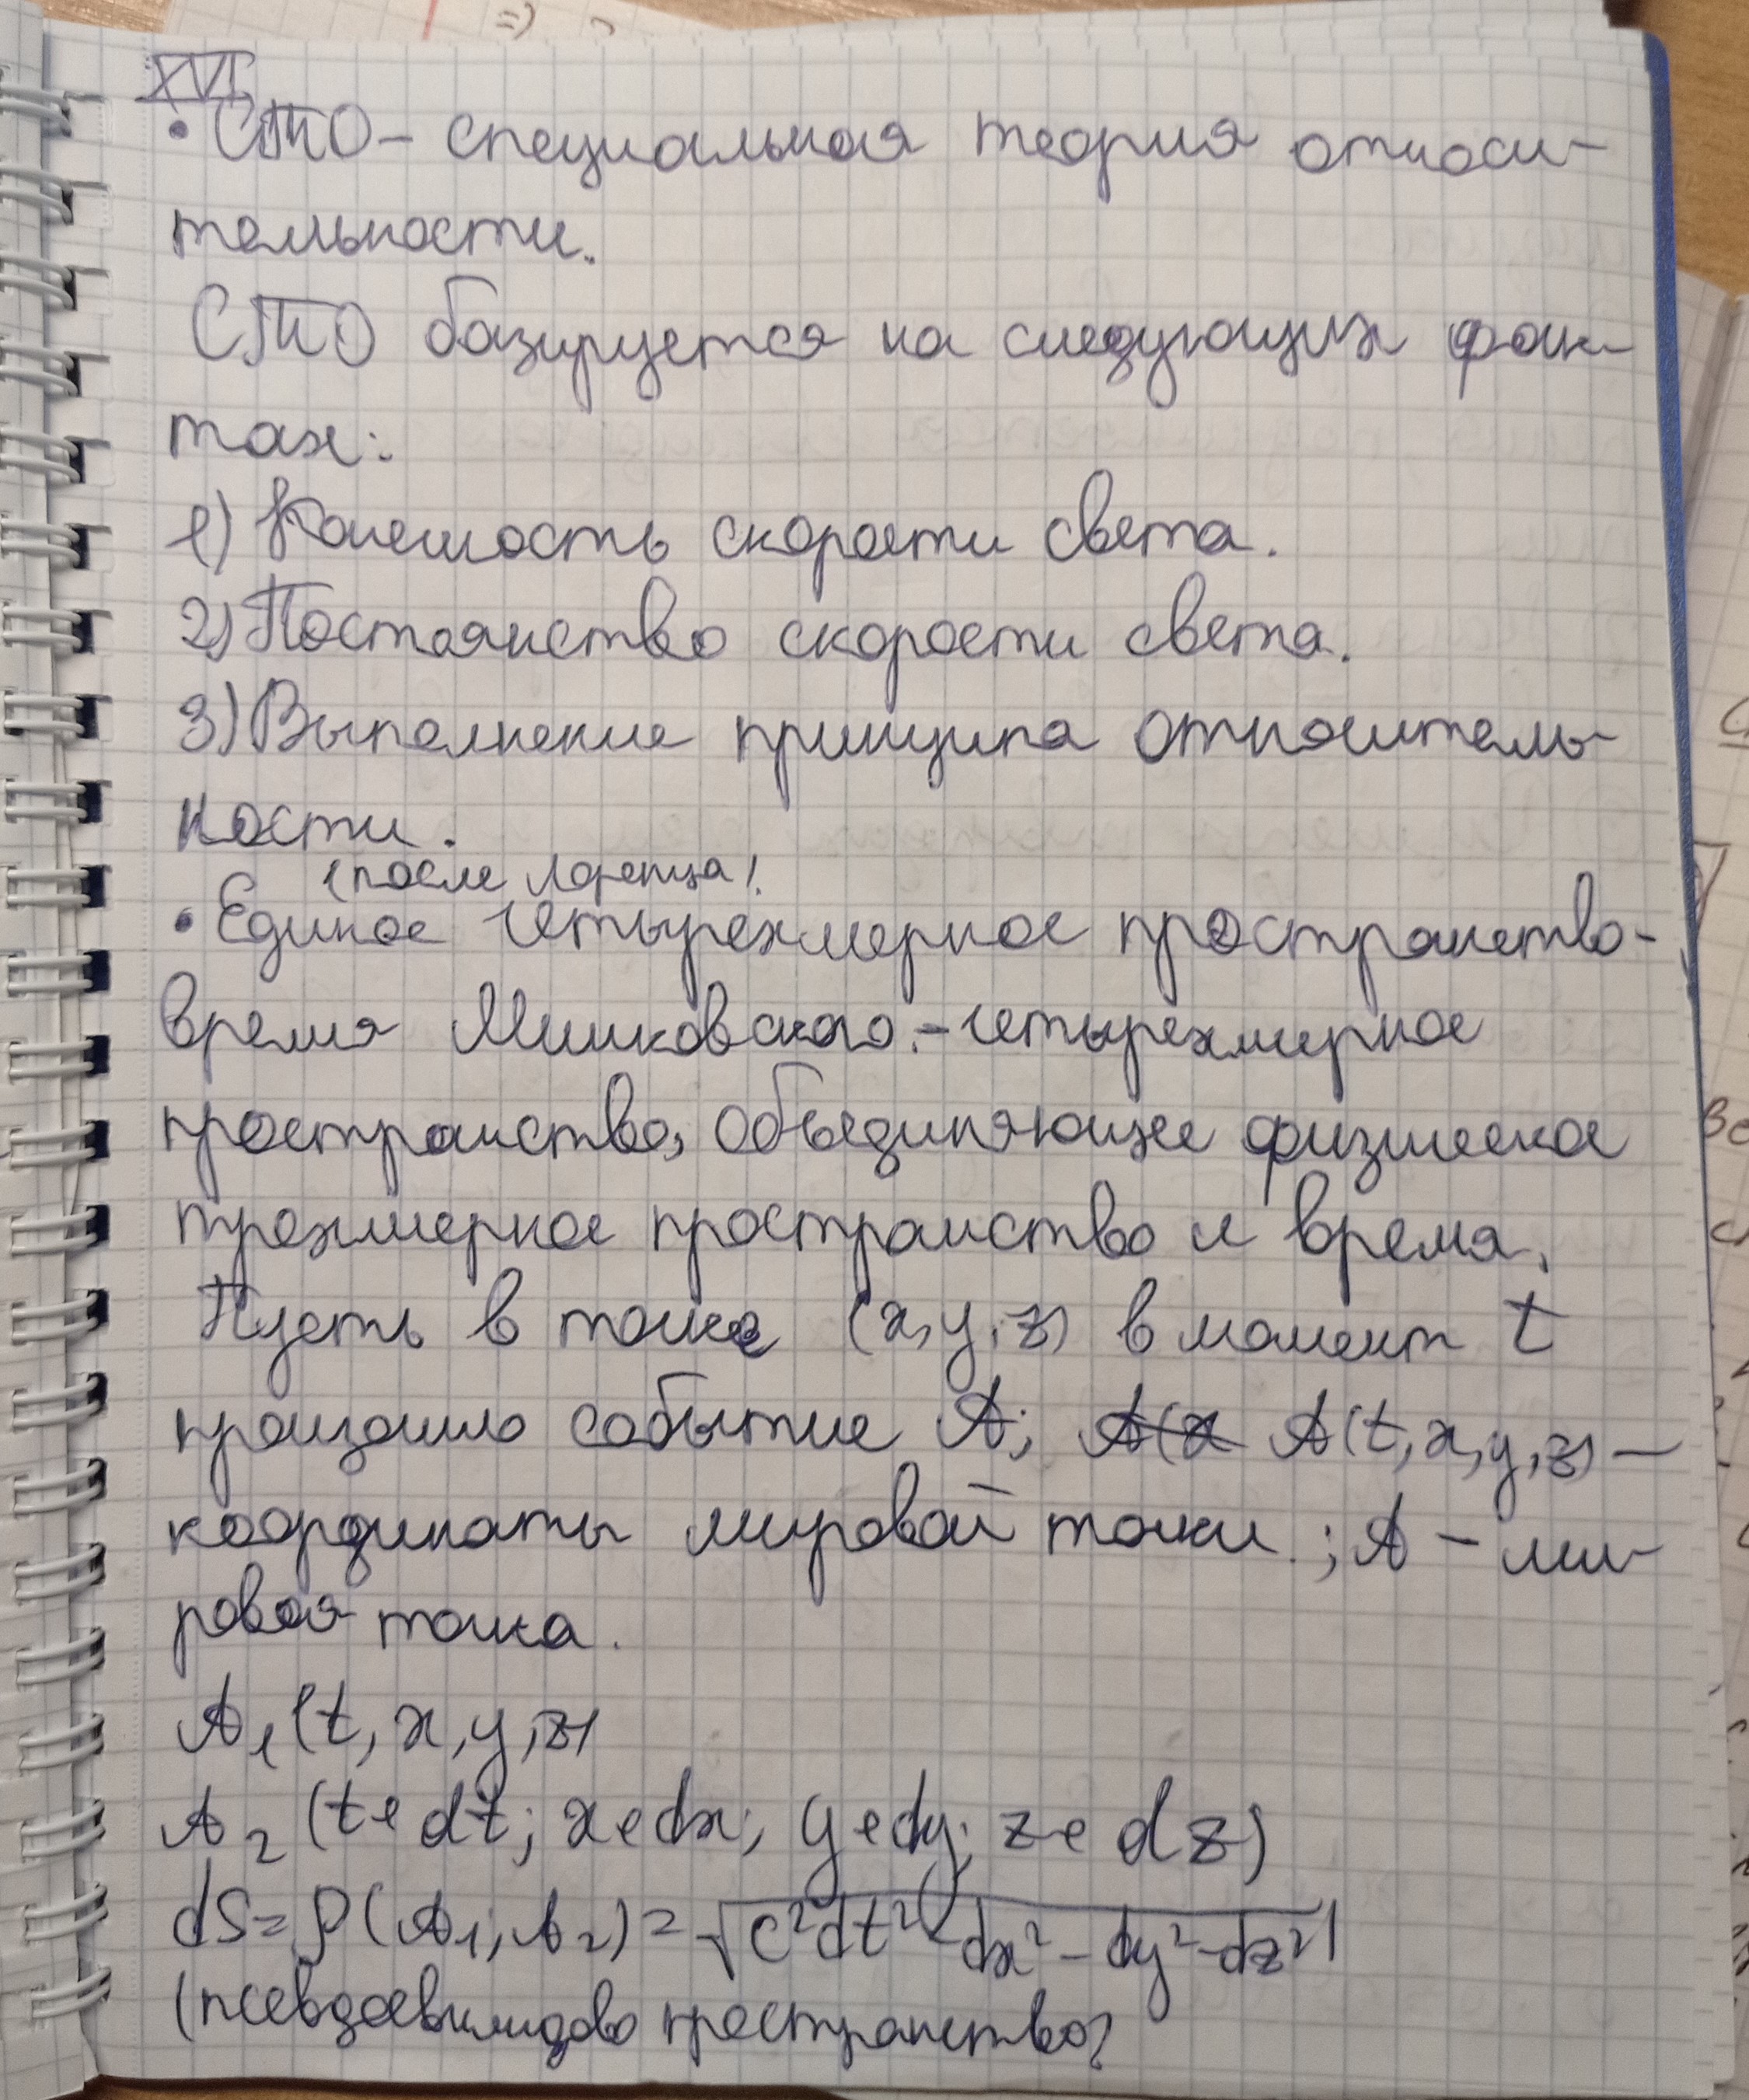 XVI
• СТО – специальная теория относи-
тельности.
СТО базируется на следующих фак-
тах:
1) Конечность скорости света.
2) Постоянство скорости света.
3) Выполнение принципа относитель-
ности.
(после Лоренца)
• Единое четырехмерное пространство-
время Минковского. – четырехмерное
пространство, объединяющее физическое
трехмерное пространство и время.
Пусть в точке (x, y, z) в момент t
произошло событие A; A(t, x, y, z) –
координаты мировой точки ; A – ми-
ровая точка.
A₁(t, x, y, z)
A₂ (t+dt; x+dx; y+dy; z+dz)
dS = ρ(A₁; A₂) = √(c²dt² - dx² - dy² - dz²)
(псевдоевклидово пространство)